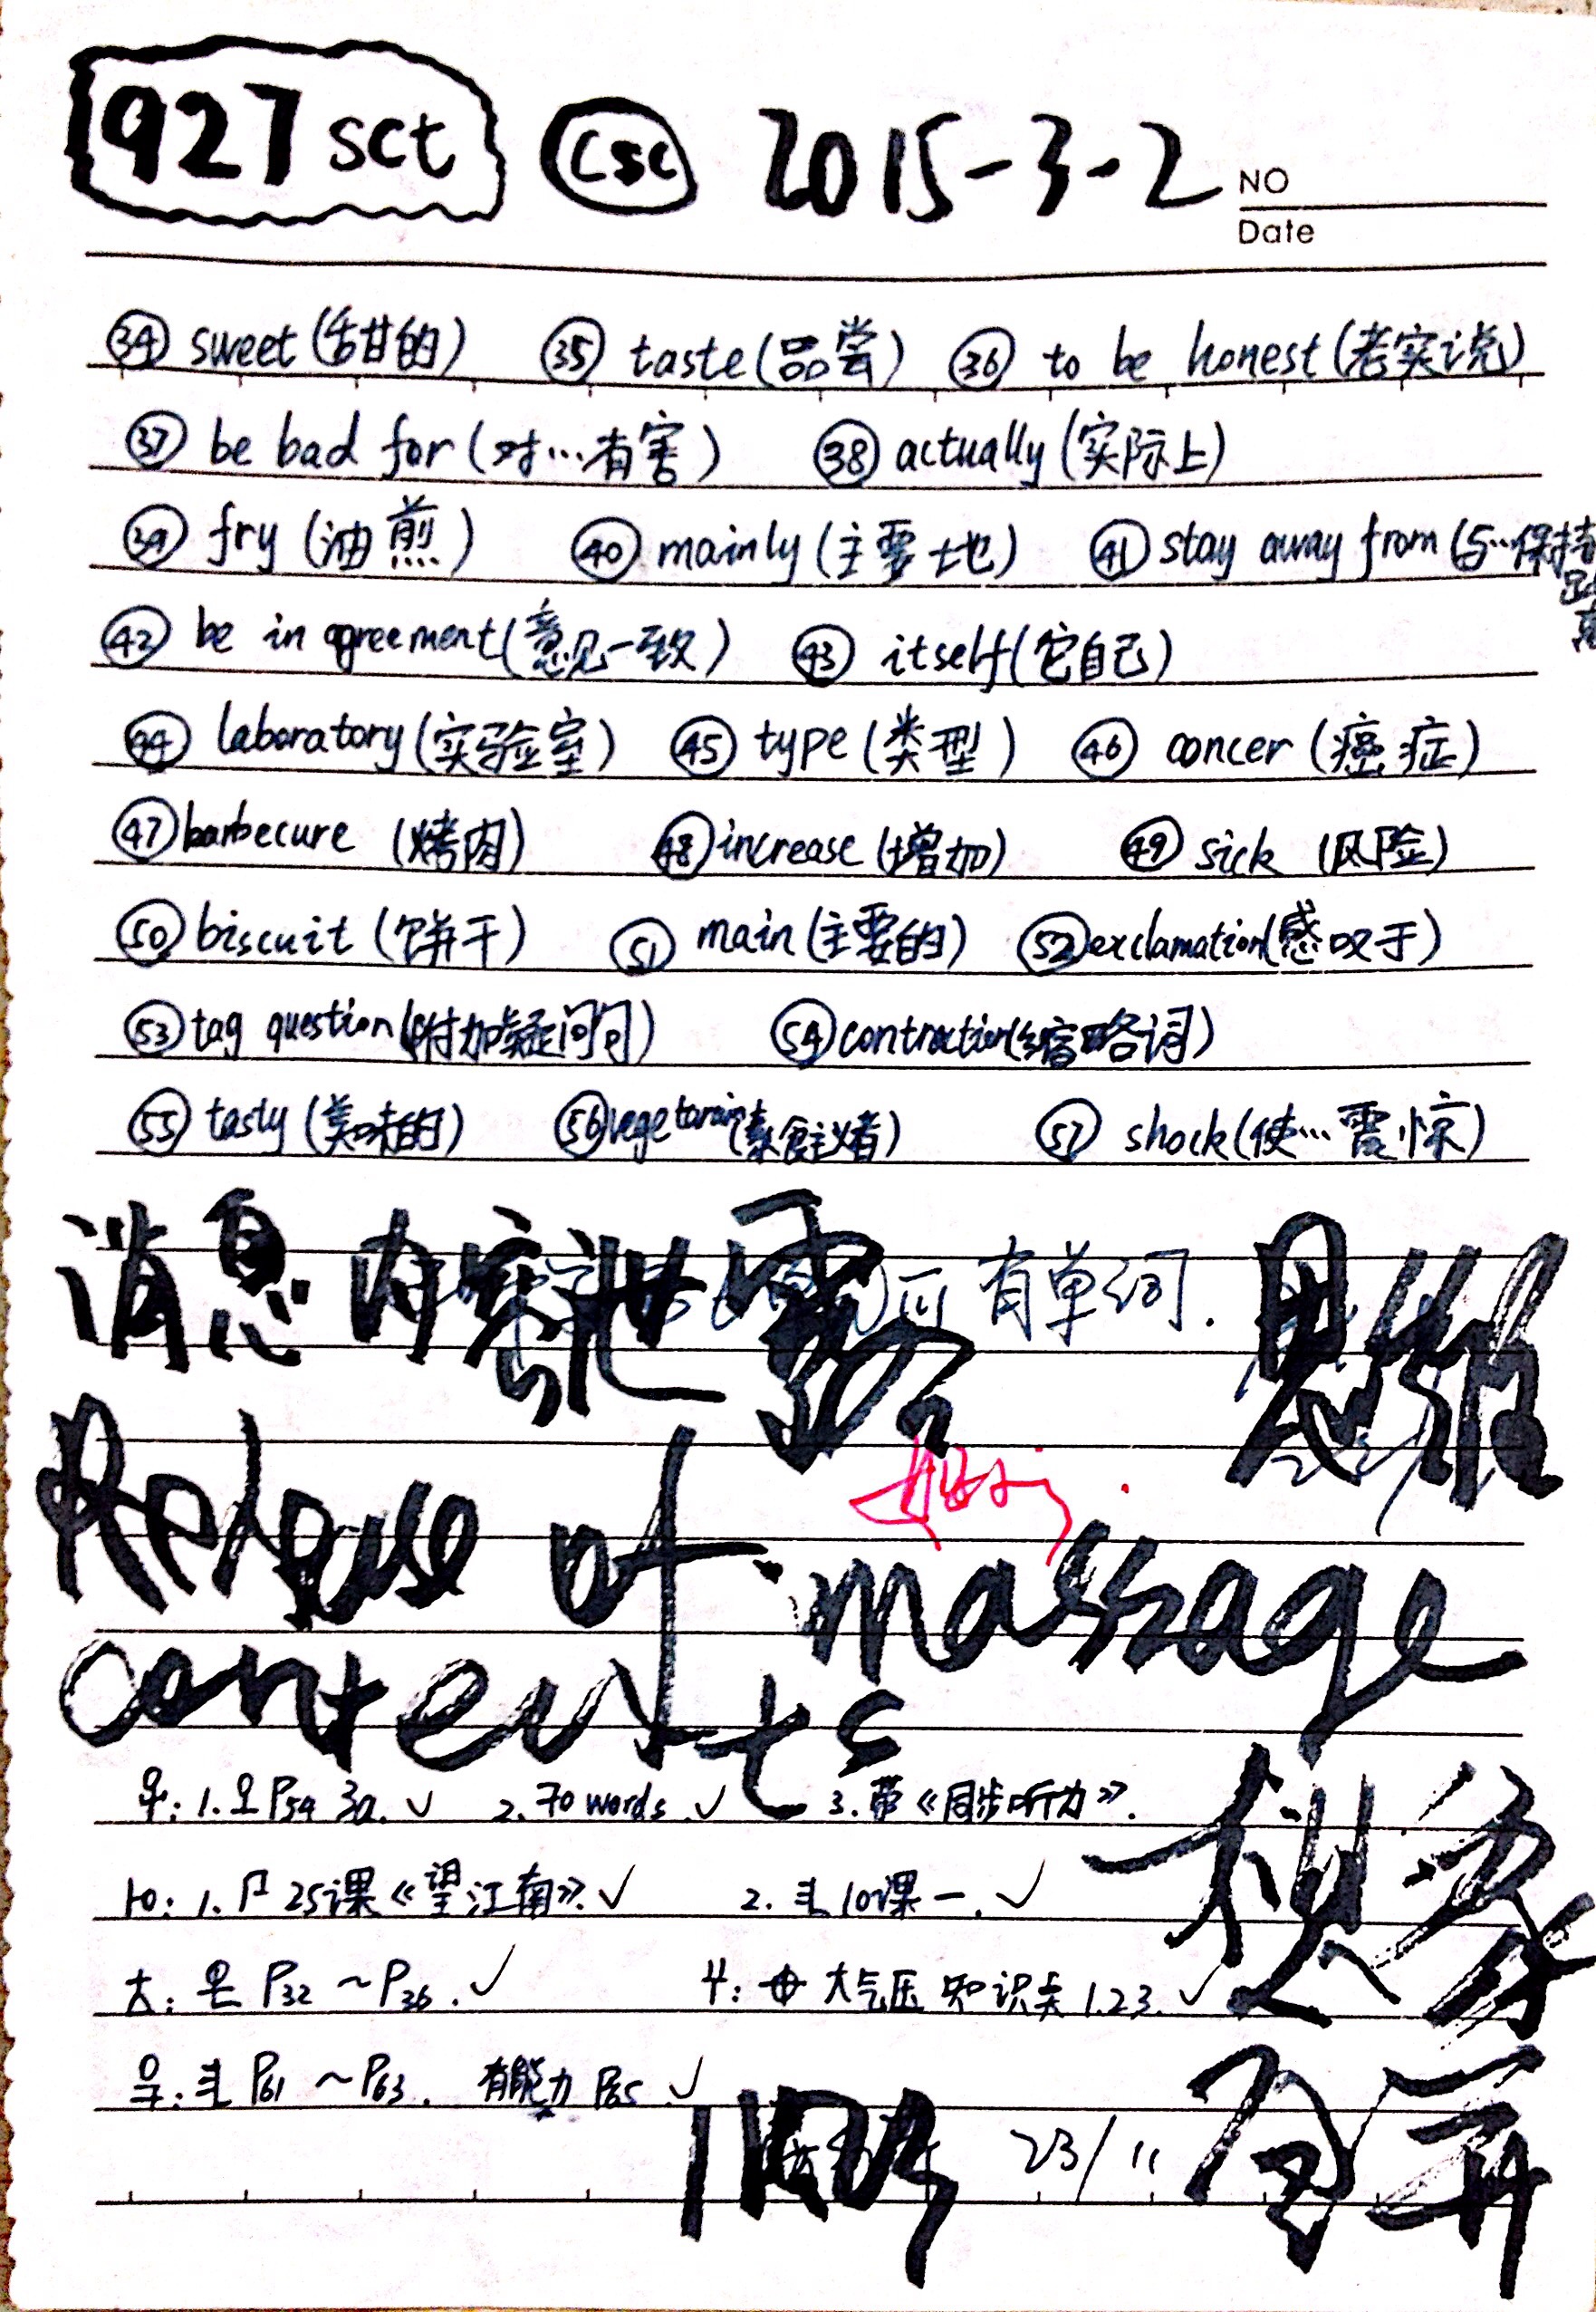 927 sct csc 2015-3-2 NO
Date
㉞ sweet (甜的) ㉟ taste (品尝) ㊱ to be honest (老实说)
㊲ be bad for (对…有害) ㊳ actually (实际上)
㊴ fry (油煎) ㊵ mainly (主要地) ㊶ stay away from (与…保持距离
㊷ be in agreement (意见一致) ㊸ itself (它自己)
㊹ laboratory (实验室) ㊺ type (类型) ㊻ concer (癌症)
㊼ barbecure (烤肉) ㊽ increase (增加) ㊾ sick (风险)
㊿ biscuit (饼干) 51 main (主要的) 52 exclamation (感叹于)
53 tag question (附加疑问句) 54 contraction (缩略词)
55 tasty (美味的) 56 vegetarain (素食主义者) 57 shock (使…震惊)
消息内容泄露 有单词. 思维
of massage
contents
1. P54 3a. ✓ 2. 70 words ✓ 3. 带《同步听力》.
1. 25课《望江南》. ✓ 2. 10课一. ✓
P32 ~ P36. ✓ 大气压 知识点 1.2.3. ✓
P61 ~ P63. 有能力 P65 ✓
23/11